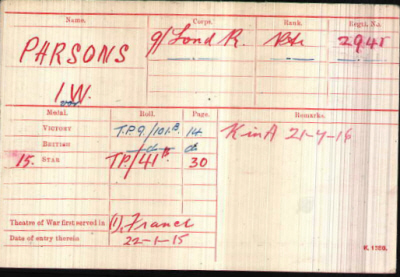 Name. Corps. Rank. Regtl. No.
PARSONS 9/Lond R. Pte 2941
I.W.
Medal. Roll. Page. Remarks.
VICTORY T.P.9/101B. 14 K in A 21-4-16
BRITISH do do
15. STAR TP/41B. 30
Theatre of War first served in (1), France
Date of entry therein 22-1-15
K. 1380.